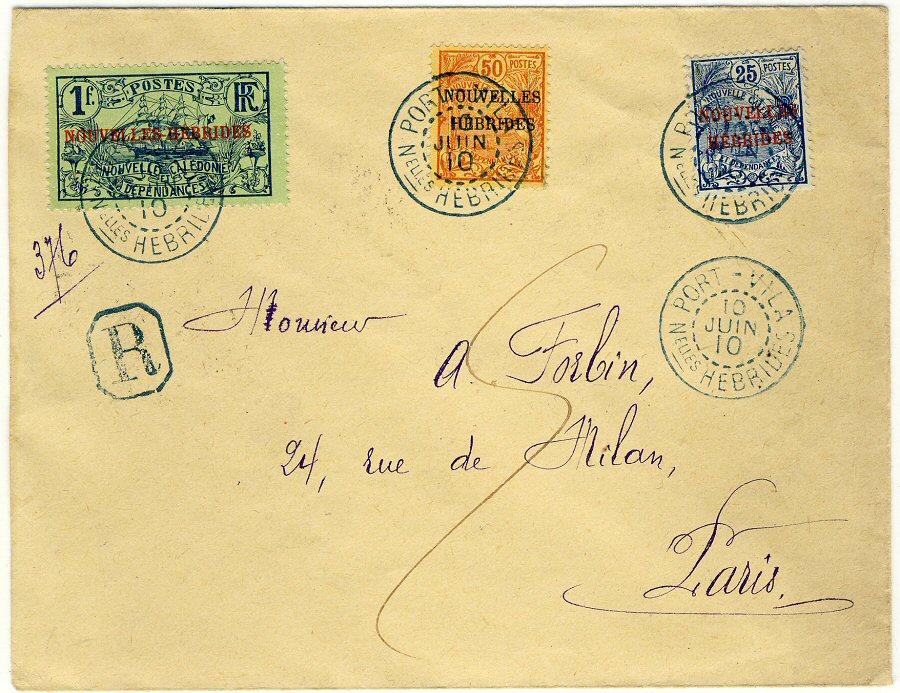 1f. POSTES RF
NOUVELLES-HÉBRIDES
NOUVELLE-CALÉDONIE
& DÉPENDANCES
10
Nelles HEBRIDES
50 POSTES
NOUVELLES
HÉBRIDES
PORT-VILA
10
JUIN
10
Nelles HEBRIDES
25 POSTES
NOUVELLE
NOUVELLES
HÉBRIDES
& DÉPENDANCES
Nelles HEBRIDES
376
R
PORT-VILA
10
JUIN
10
Nelles HEBRIDES
Monsieur
A. Forbin,
24, rue de Milan,
Paris.